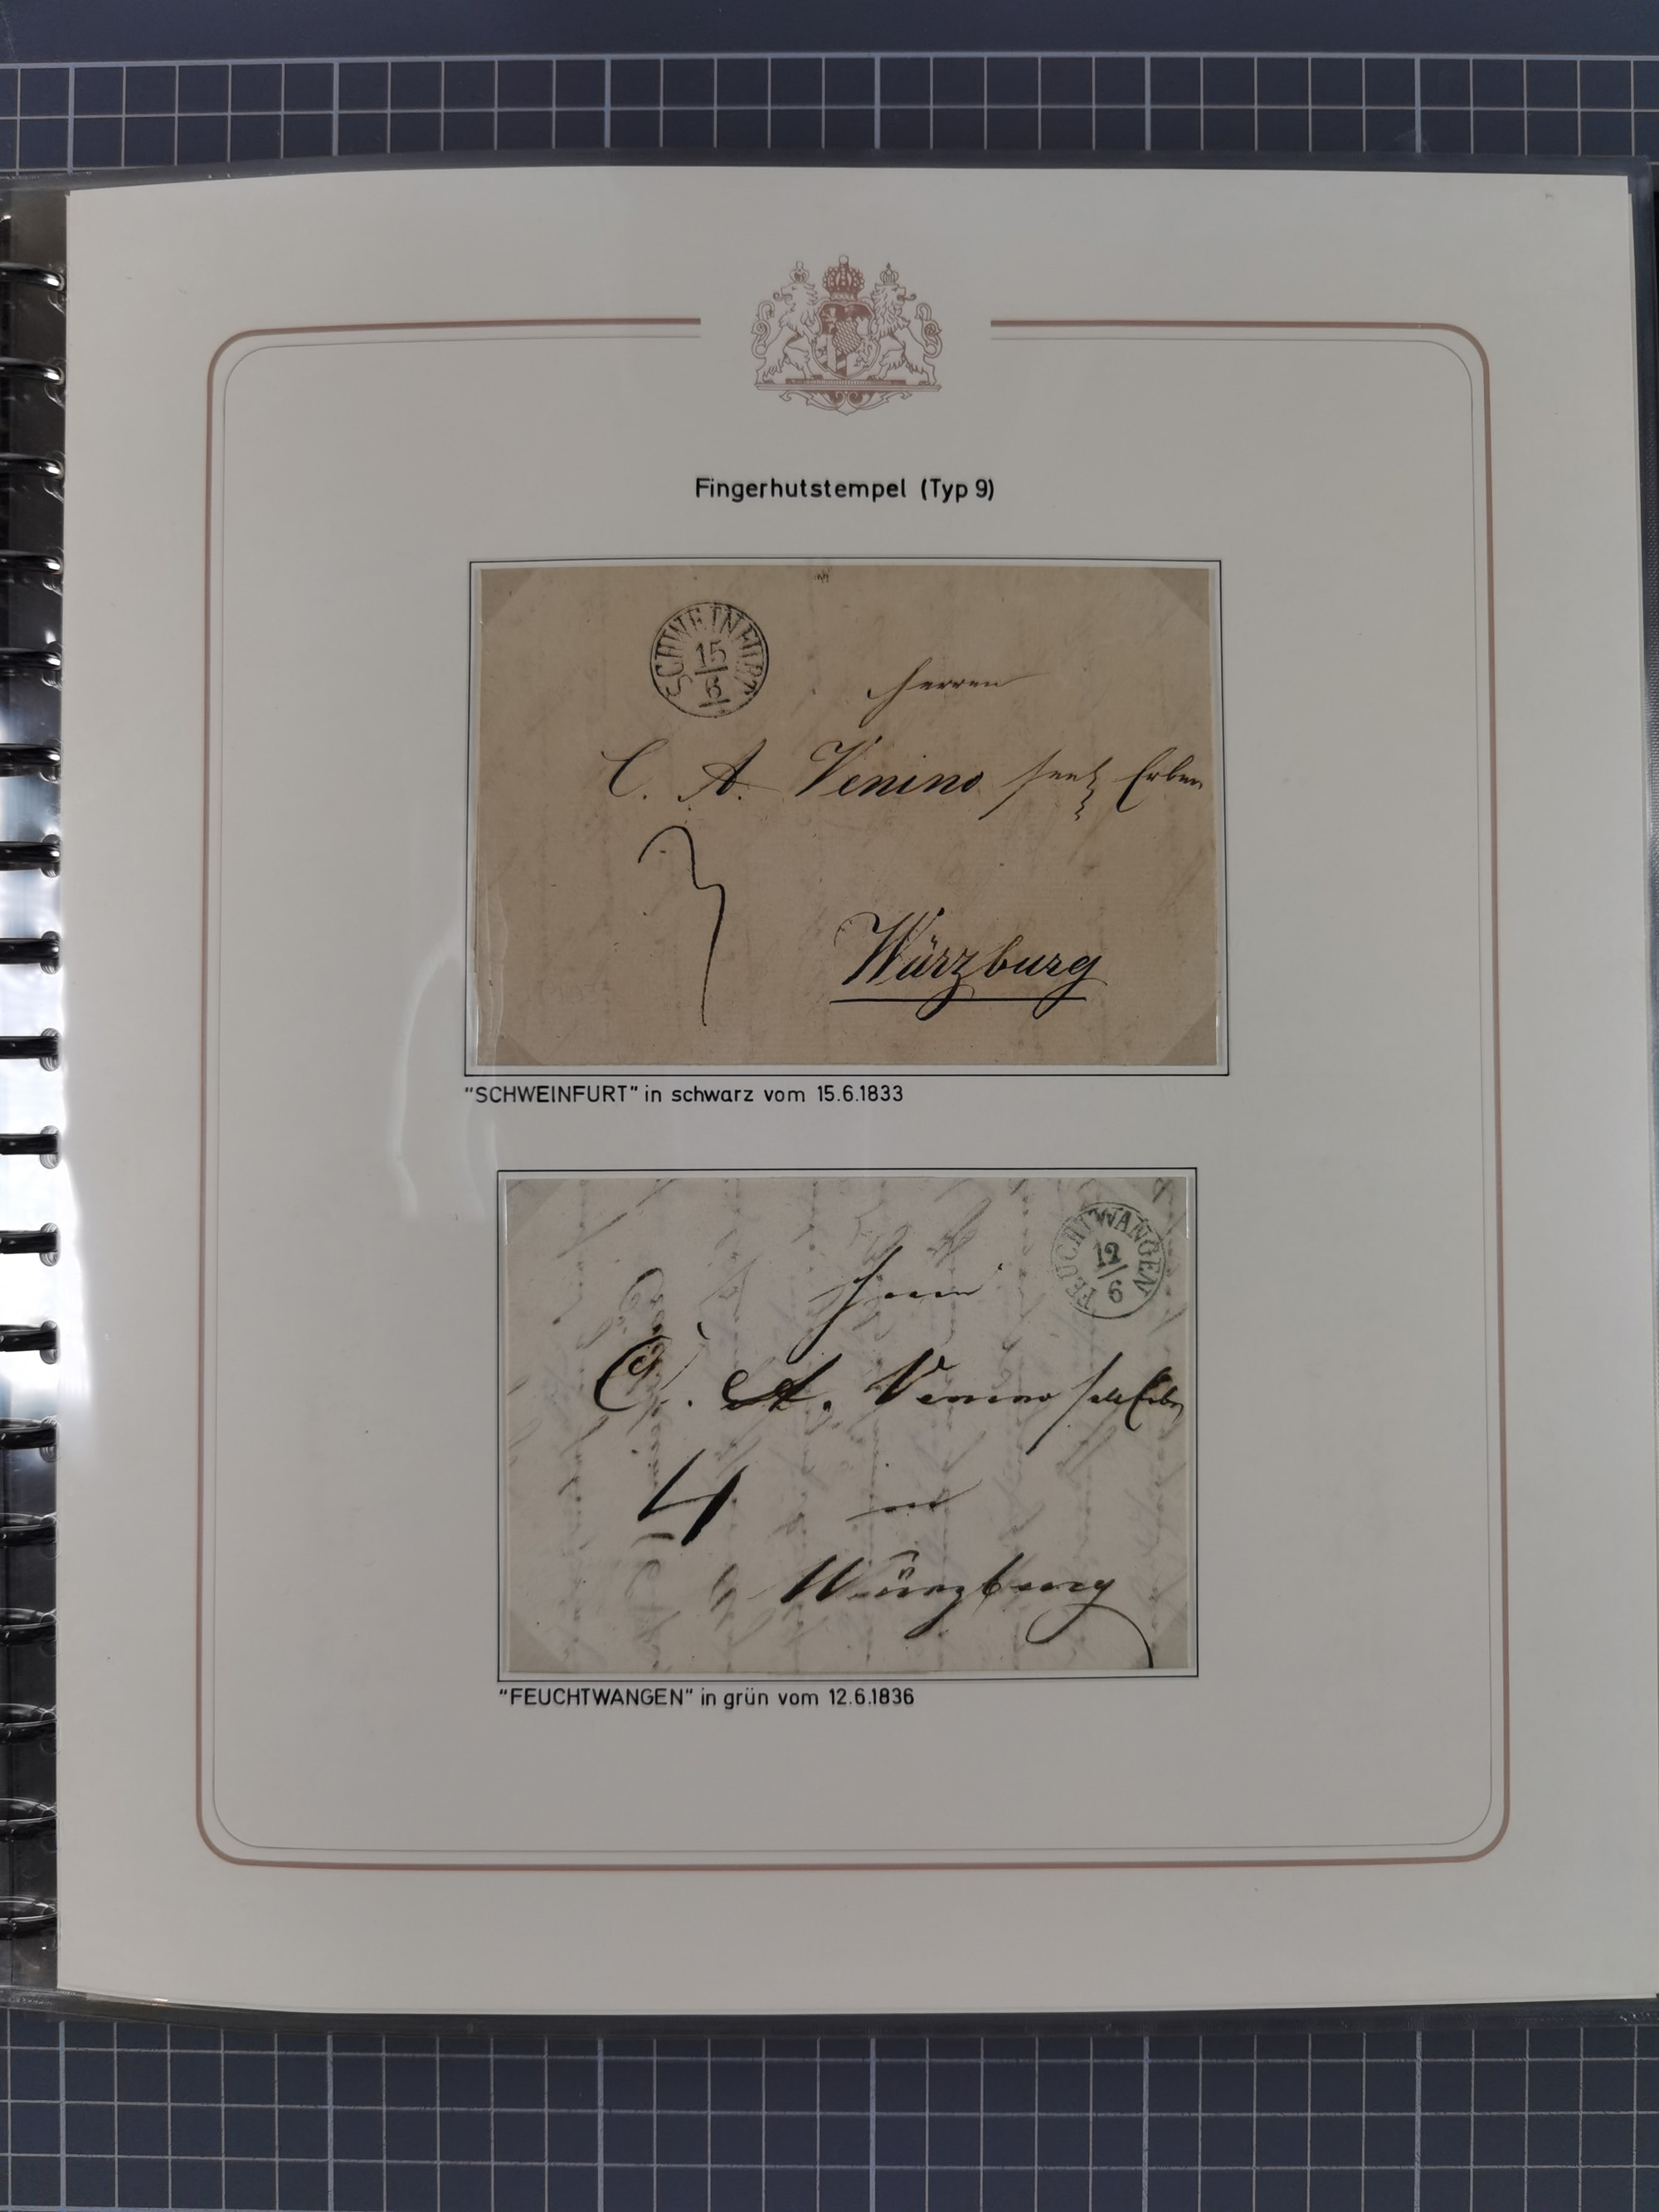 Fingerhutstempel (Typ 9)
SCHWEINFURT
15
6
Herren
C. A. Venino seel Erben
3
Würzburg
"SCHWEINFURT" in schwarz vom 15.6.1833
FEUCHTWANGEN
12/6
Herrn
C. A. Venino sel Erben
4
in
Würzburg
"FEUCHTWANGEN" in grün vom 12.6.1836